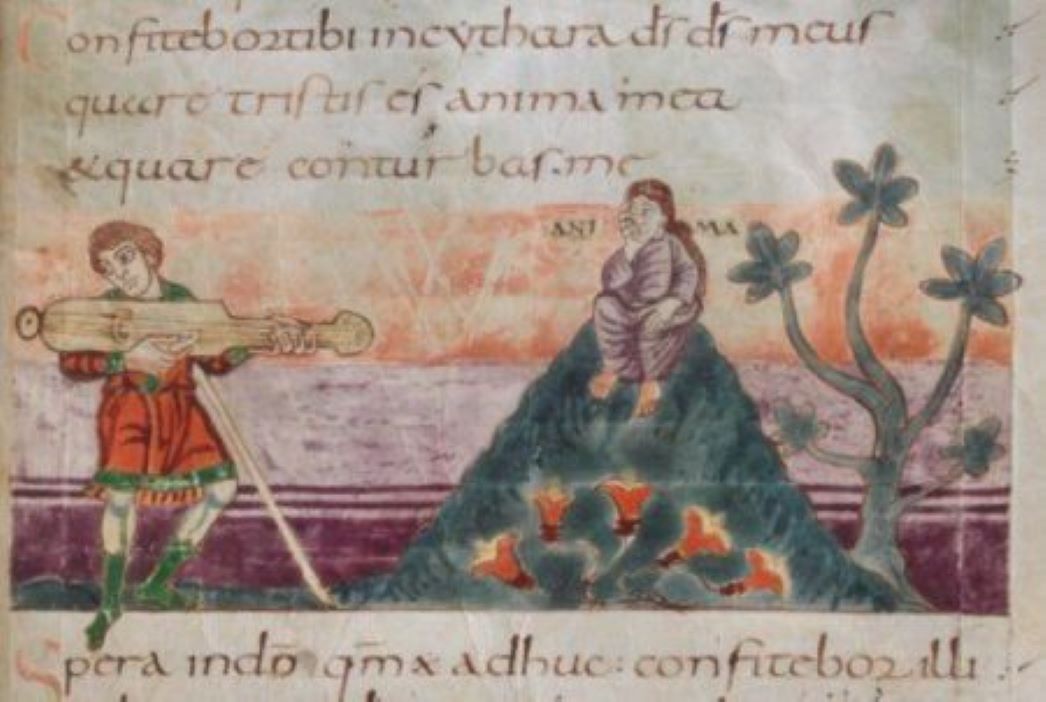 Confitebor tibi in cythara d̄s d̄s meus
quare tristis es anima mea
& quare conturbas me
ANI MA
Spera in dō qm̄ adhuc confitebor illi